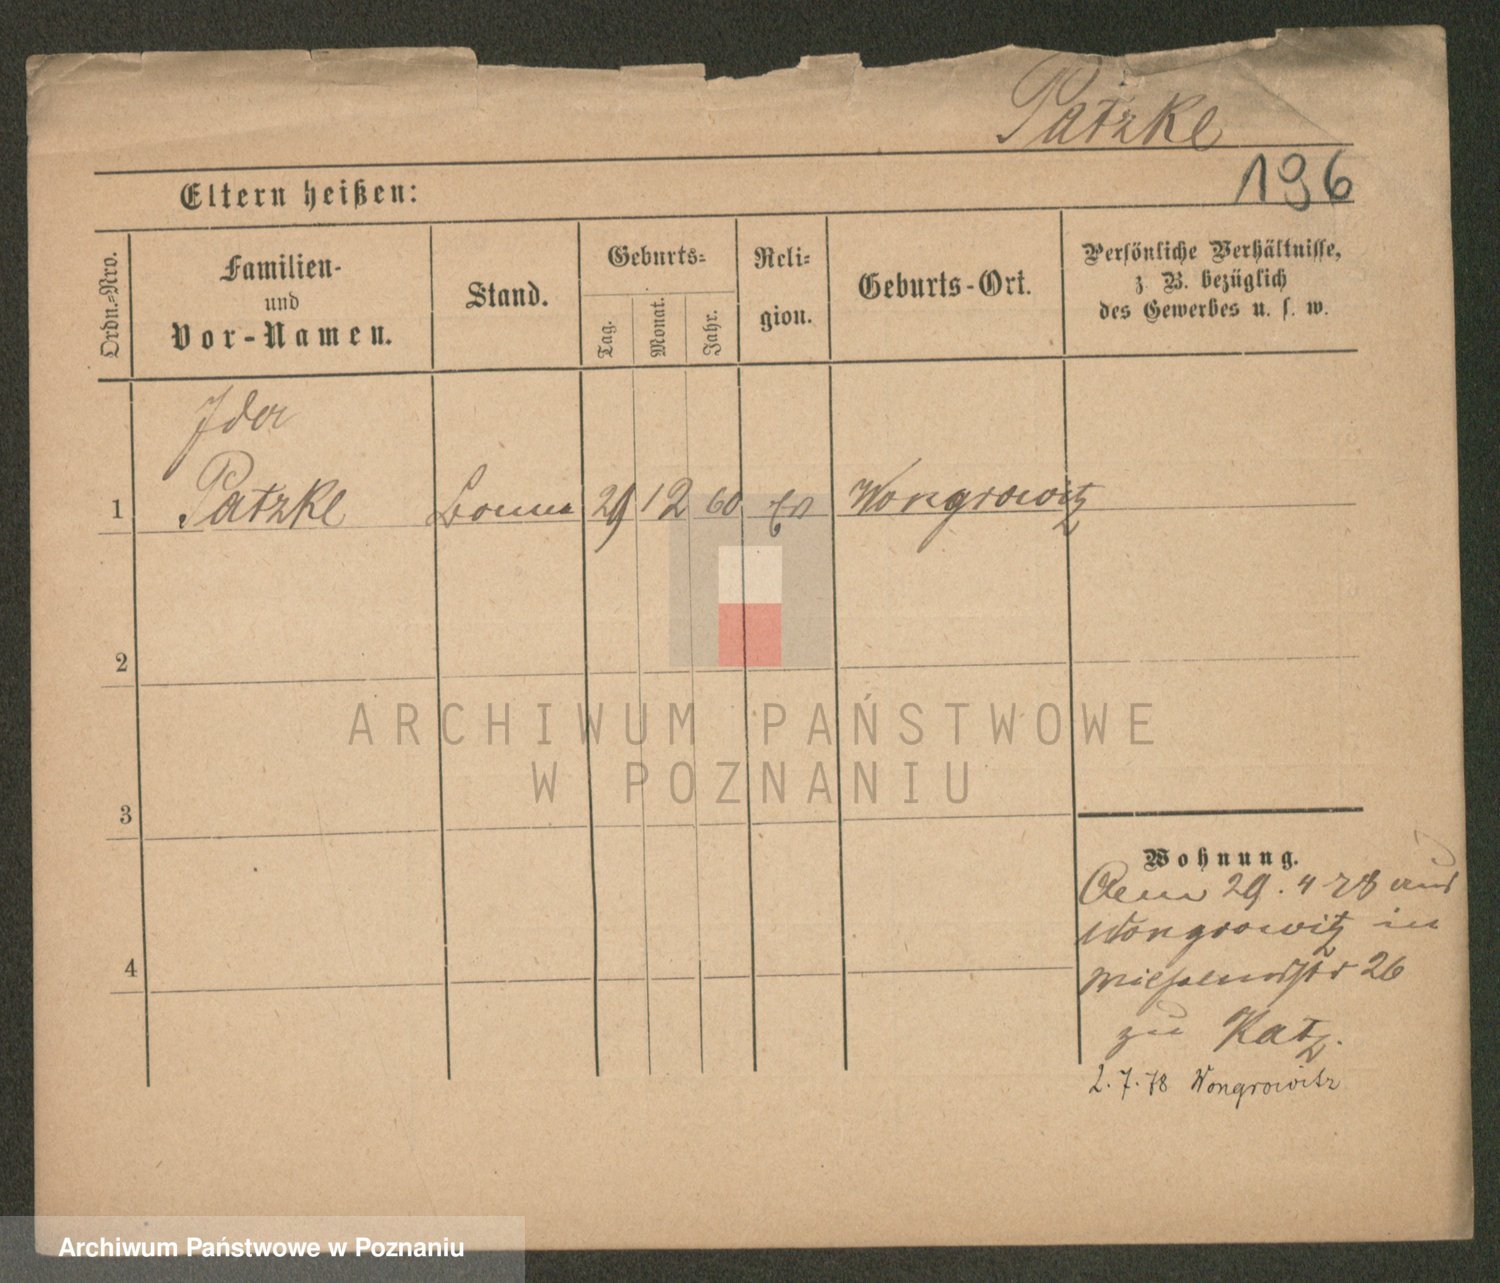 Patzke
196
Eltern heißen:
Ordn.-Nro.
Familien-
und
Vor-Namen.
Stand.
Geburts-
Tag.
Monat.
Jahr.
Reli-
gion.
Geburts-Ort.
Persönliche Verhältnisse,
z. B. bezüglich
des Gewerbes u. s. w.
Ida
1 Patzke Bonne 29 12 60 Wongrowitz
2
3
4
Wohnung.
29. 4 78 aus
Wongrowitz in
26
zu Katz.
2. 7. 78 Wongrowitz
ARCHIWUM PAŃSTWOWE
W POZNANIU
Archiwum Państwowe w Poznaniu